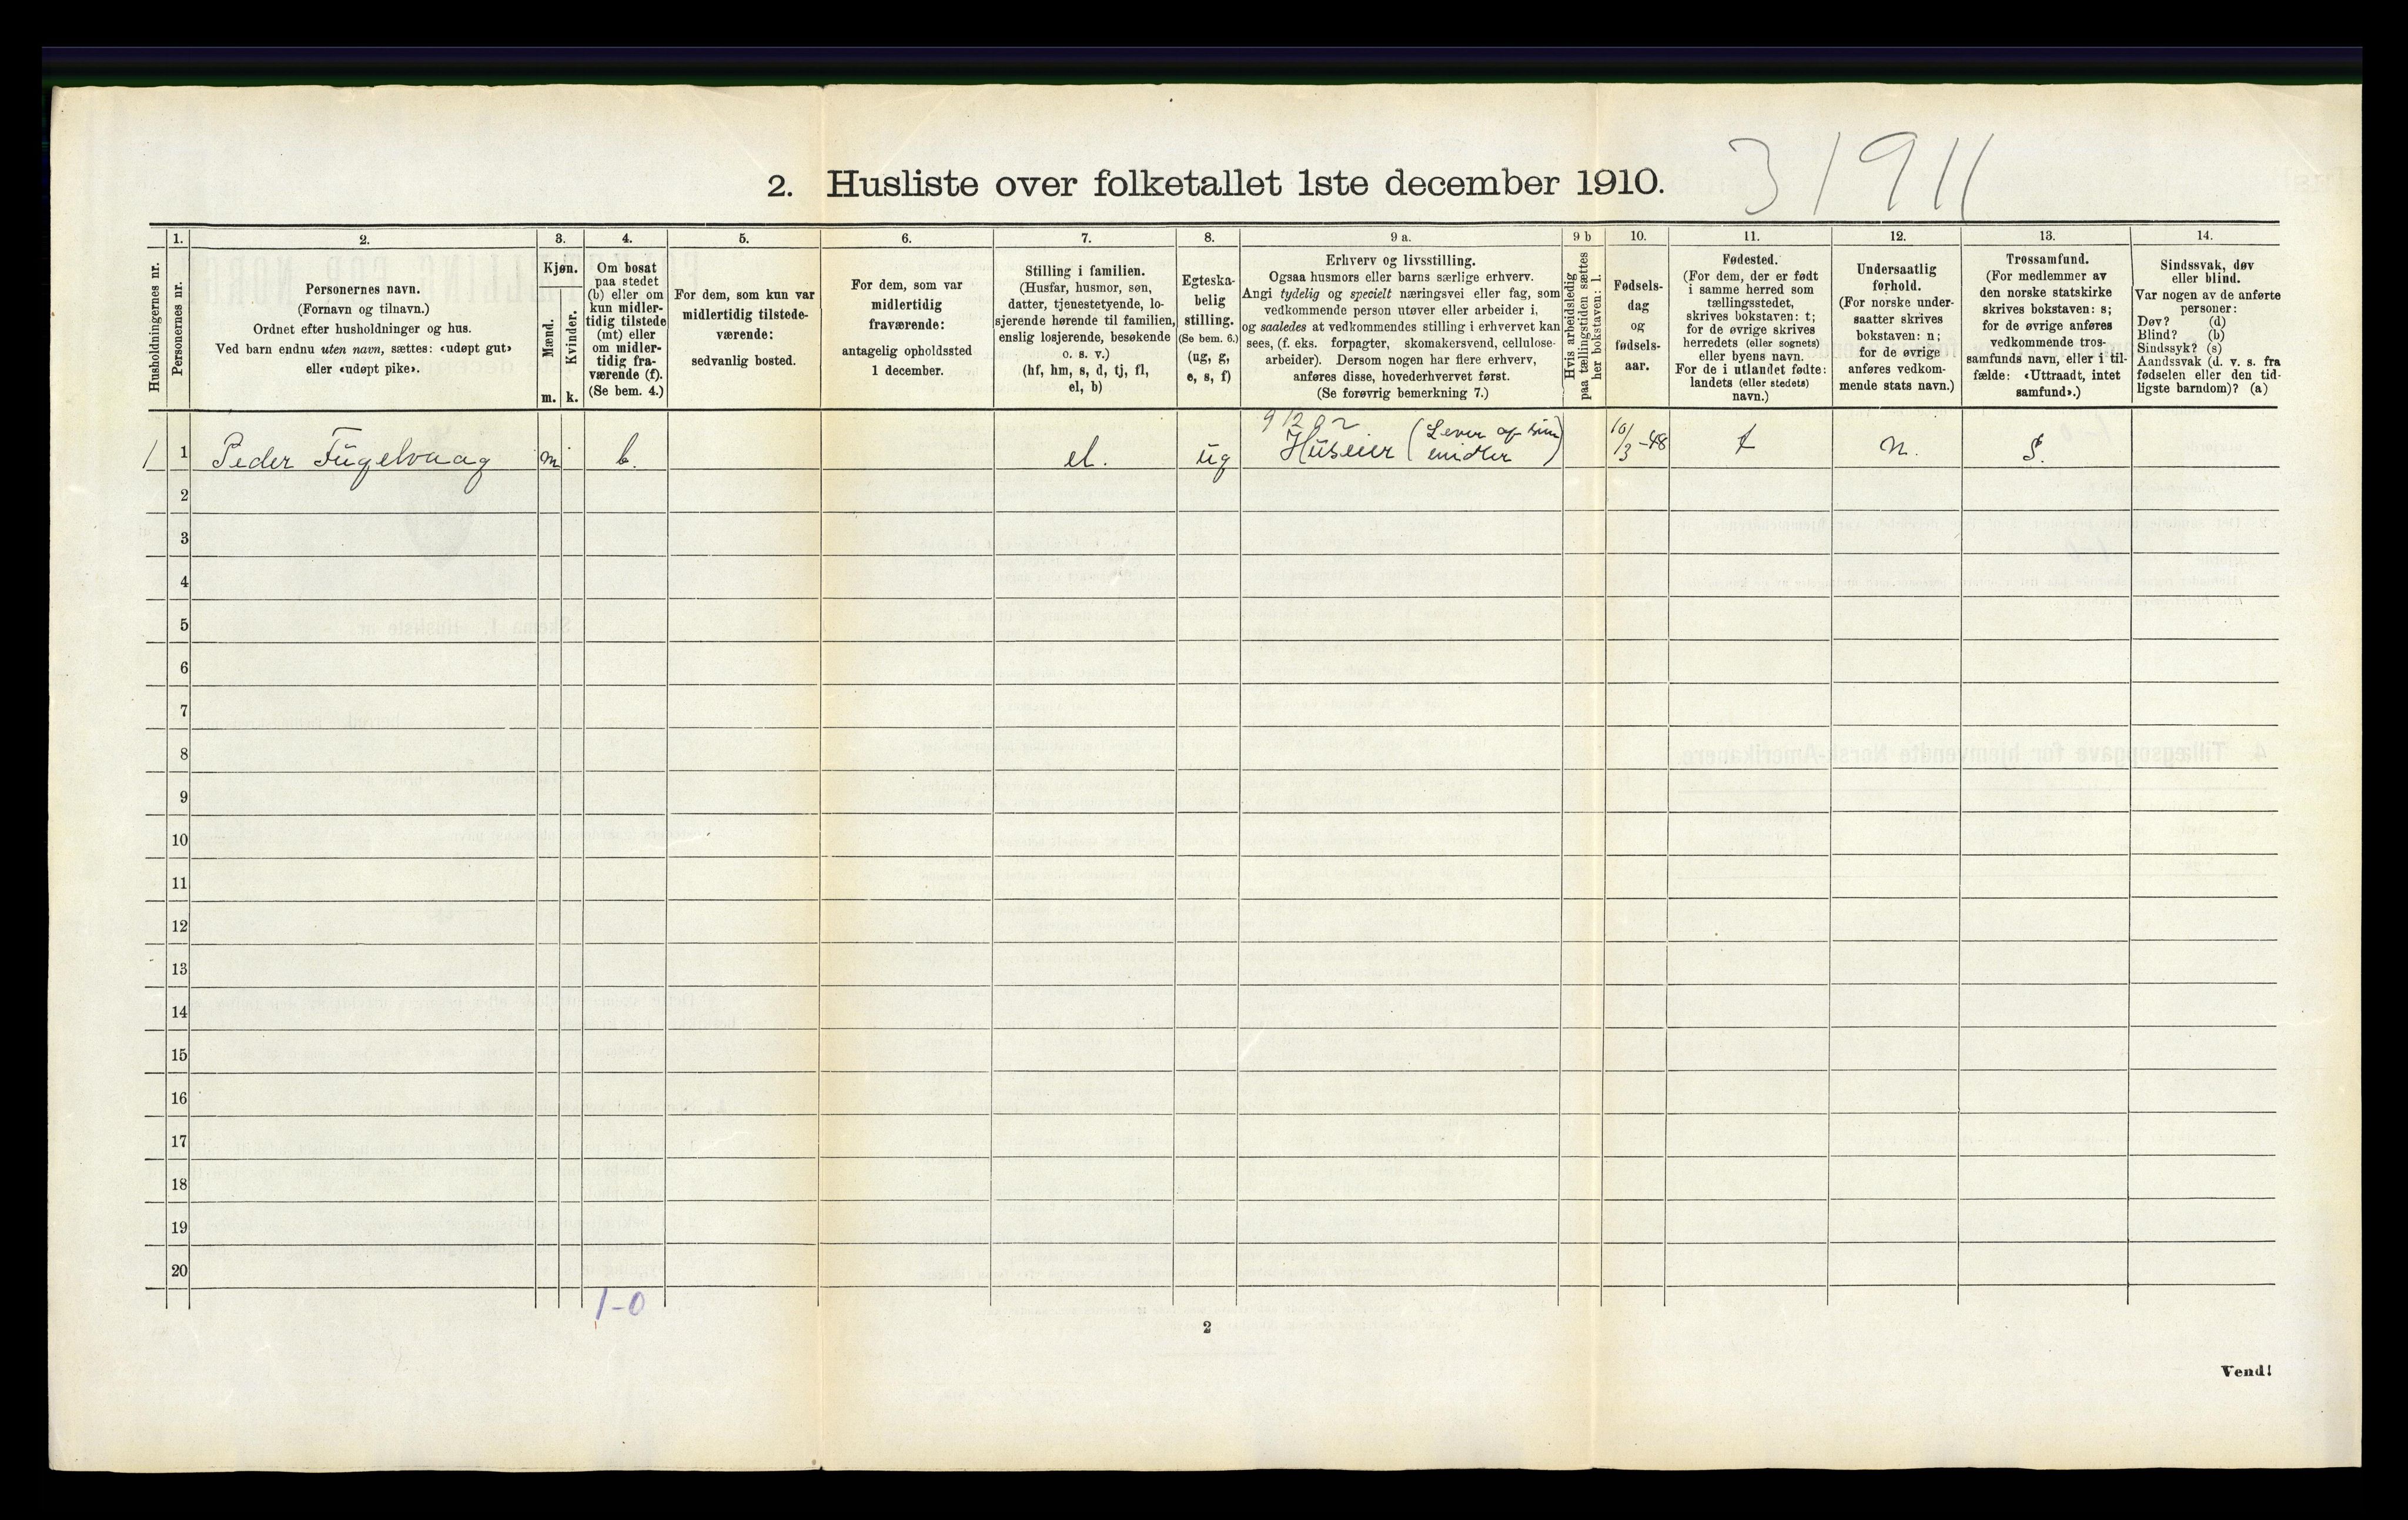 2. Husliste over folketallet 1ste december 1910.
31911
Husholdningernes nr.
1.
Personernes nr.
2.
Personernes navn.
(Fornavn og tilnavn.)
Ordnet efter husholdninger og hus.
Ved barn endnu uten navn, sættes: «udøpt gut»
eller «udøpt pike».
3.
Kjøn.
Mænd.
Kvinder.
m. k.
4.
Om bosat
paa stedet
(b) eller om
kun midler-
tidig tilstede
(mt) eller
om midler-
tidig fra-
værende (f).
(Se bem. 4.)
5.
For dem, som kun var
midlertidig tilstede-
værende:
sedvanlig bosted.
6.
For dem, som var
midlertidig
fraværende:
antagelig opholdssted
1 december.
7.
Stilling i familien.
(Husfar, husmor, søn,
datter, tjenestetyende, lo-
sjerende hørende til familien,
enslig losjerende, besøkende
o. s. v.)
(hf, hm, s, d, tj, fl,
el, b)
8.
Egteska-
belig
stilling.
(Se bem. 6.)
(ug, g,
e, s, f)
9 a.
Erhverv og livsstilling.
Ogsaa husmors eller barns særlige erhverv.
Angi tydelig og specielt næringsvei eller fag, som
vedkommende person utøver eller arbeider i,
og saaledes at vedkommendes stilling i erhvervet kan
sees, (f. eks. forpagter, skomakersvend, cellulose-
arbeider). Dersom nogen har flere erhverv,
anføres disse, hovederhvervet først.
(Se forøvrig bemerkning 7.)
9 b
Hvis arbeidsledig
paa tællingstiden sættes
her bokstaven: l.
10.
Fødsels-
dag
og
fødsels-
aar.
11.
Fødested.
(For dem, der er født
i samme herred som
tællingsstedet,
skrives bokstaven: t;
for de øvrige skrives
herredets (eller sognets)
eller byens navn.
For de i utlandet fødte:
landets (eller stedets)
navn.)
12.
Undersaatlig
forhold.
(For norske under-
saatter skrives
bokstaven: n;
for de øvrige
anføres vedkom-
mende stats navn.)
13.
Trossamfund.
(For medlemmer av
den norske statskirke
skrives bokstaven: s;
for de øvrige anføres
vedkommende tros-
samfunds navn, eller i til-
fælde: «Uttraadt, intet
samfund».)
14.
Sindssvak, døv
eller blind.
Var nogen av de anførte
personer:
Døv? (d)
Blind? (b)
Sindssyk? (s)
Aandssvak (d. v. s. fra
fødselen eller den tid-
ligste barndom)? (a)
91202
1 1 Peder Fugelvaag m b. el. ug Huseier (Lever af sine midler) 10/3-48 t n. s.
2
3
4
5
6
7
8
9
10
11
12
13
14
15
16
17
18
19
20
1-0
2
Vend!